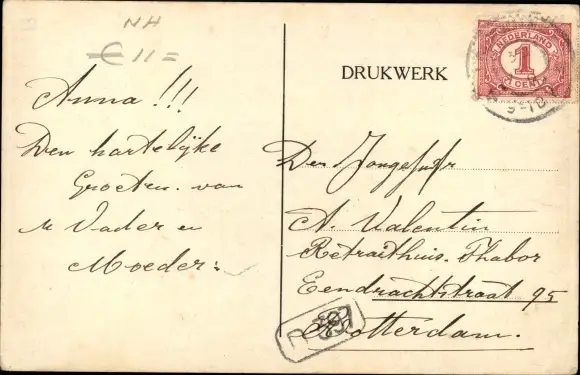 NH
€ 11=
Anna!!!
Den hartelijke
Groeten van
Vader en
Moeder:
DRUKWERK
NEDERLAND
1
CENT
9-10
Den Jongejufr
A. Valentin
Retraithuis. Thabor
Eendrachtstraat 95
Rotterdam.